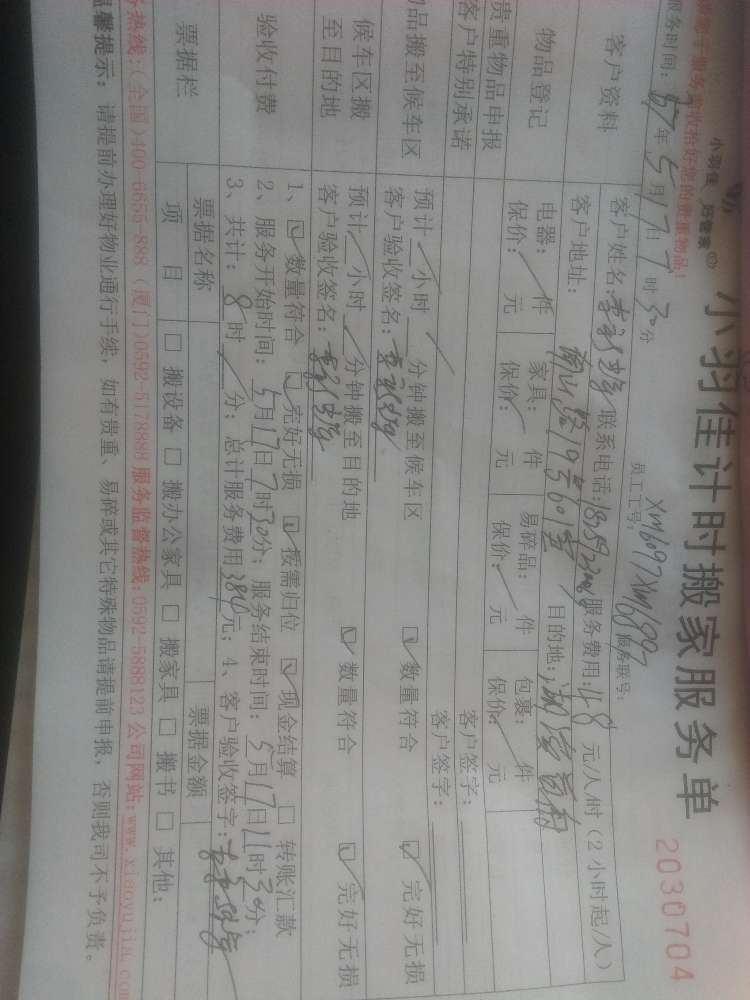 小羽佳 好管家
小羽佳计时搬家服务单
2030704
员工工号：XM6097XM6892 服务联号：
服务时间：年5月17日7时30分
客户资料
客户姓名： 联系电话： 服务费用：48元/小时（2小时起/人）
客户地址：19号601室 目的地：
物品登记
电器： 件 家具： 件 易碎品： 件 包裹： 件
保价： 元 保价： 元 保价： 元 保价： 元
贵重物品申报 客户签字：
客户特别承诺 客户签字：
物品搬至候车区
预计 小时 分钟搬至候车区 数量符合 完好无损
客户验收签名：
候车区搬至目的地
预计 小时 分钟搬至目的地 数量符合 完好无损
客户验收签名：
验收付费
1、 数量符合 完好无损 按需归位 现金结算 转账汇款
2、服务开始时间：5月17日7时30分；服务结束时间：5月17日11时30分；
3、共计：8时 分；总计服务费用384元；4、客户验收签字：
票据栏
票据名称 票据金额
项 目 搬设备 搬办公家具 搬家具 搬书 其他：
务热线：（全国）400-6655-888（厦门）0592-5178888 服务监督热线：0592-5888123 公司网站：www.xiaoyujia.com
温馨提示：请提前办理好物业通行手续，如有贵重、易碎或其它特殊物品请提前申报，否则我司不予负责。